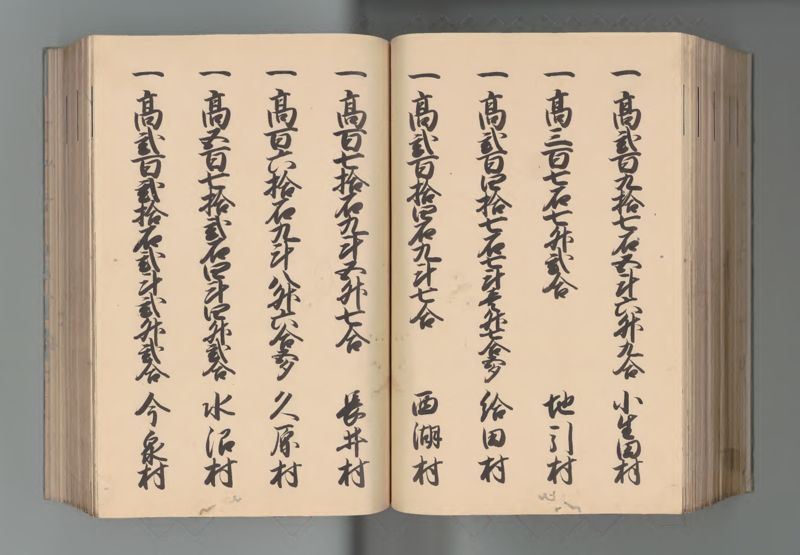 一 高弐百九拾七石五斗六升九合 小生田村
一 高三百七石七升弐合 地引村
一 高弐百四拾七石七斗壱升七合余 給田村
一 高弐百拾四石九斗七合 西湖村
一 高百七拾石九斗五升七合 長井村
一 高百六拾石九斗八升六合余 久原村
一 高五百七拾弐石四斗四升弐合 水沼村
一 高弐百弐拾石弐斗弐升弐合 今泉村